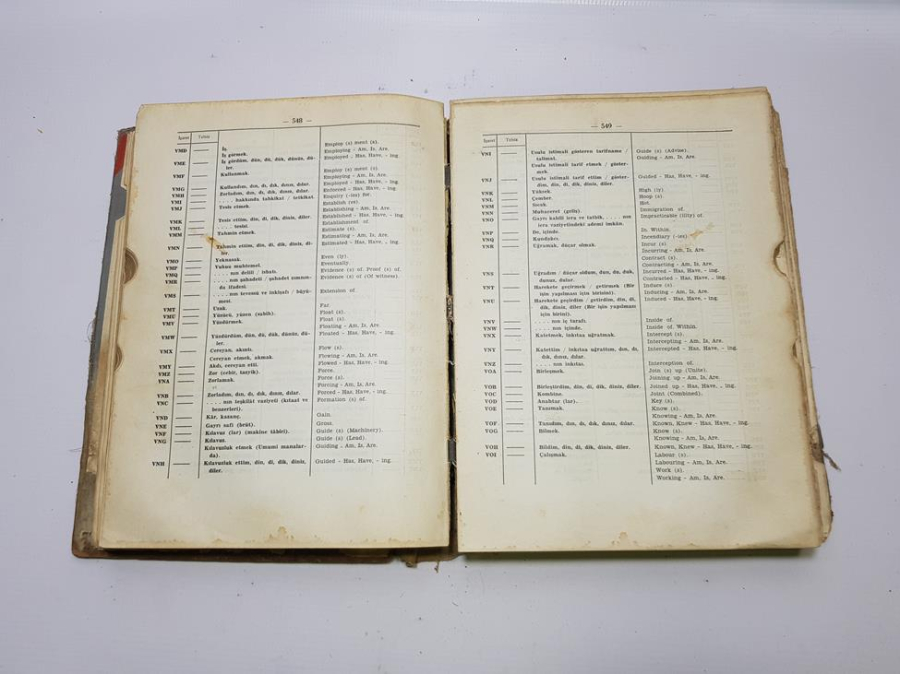 — 548 —
İşaret Telsiz
VMD İş. Employ (s) ment (s).
İş görmek. Employing - Am, Is, Are.
VME İş gördüm, dün, dü, dük, dünüz, dü- Employed - Has, Have, - ing
ler.
VMF Kullanmak. Employ (s) ment (s).
Employing - Am, Is, Are.
VMG Kullandım, dın, dı, dık, dınız, dılar. Employed - Has, Have, - ing
VMH Zorladım, dın, dı, dık, dınız, dılar. Enforced - Has, Have, - ing
VMI . . . . hakkında tahkikat / tetkikat. Enquiry (-ies) for.
VMJ Tesis etmek. Establish (es).
Establishing - Am, Is, Are.
VMK Tesis ettim, din, di, dik, diniz, diler. Established - Has, Have, - ing
VML . . . . tesisi. Establishment of.
VMM Tahmin etmek. Estimate (s).
Estimating - Am, Is, Are.
VMN Tahmin ettim, din, di, dik, diniz, di- Estimated - Has, Have, - ing
ler.
VMO Yeknasak. Even (ly).
VMP Vukuu muhtemel. Eventually.
VMQ . . . . nın delili / isbatı. Evidence (s) of. Proof (s) of.
VMR . . . . nın şahadeti / şahadet zımnın- Evidence (s) of (Of witness).
da ifadesi.
VMS . . . . nın tevessü ve inkişafı / büyü- Extension of
mesi.
VMT Uzak. Far
VMU Yüzücü, yüzen (sabih). Float (s).
VMV Yüzdürmek. Float (s).
Floating - Am, Is, Are.
VMW Yüzdürdüm, dün, dü, dük, dünüz, dü- Floated - Has, Have, - ing
ler.
VMX Cereyan, akıntı. Flow (s).
Cereyan etmek, akmak. Flowing - Am, Is, Are.
VMY Aktı, cereyan etti. Flowed - Has, Have, - ing
VMZ Zor (cebir, tazyik). Force.
VNA Zorlamak. Force (s).
Forcing - Am, Is, Are.
VNB Zorladım, dın, dı, dık, dınız, dılar. Forced - Has, Have, - ing
VNC . . . . nın teşkilât vaziyeti (kıtaat ve Formation (s) of.
benzerleri).
VND Kâr, kazanç. Gain.
VNE Gayrı safi (brüt). Gross.
VNF Kılavuz (lar) (makine tâbiri). Guide (s) (Machinery).
VNG Kılavuz. Guide (s) (Lead).
Kılavuzluk etmek (Umumi manalar- Guiding - Am, Is, Are.
da).
VNH Kılavuzluk ettim, din, di, dik, diniz, Guided - Has, Have, - ing.
diler.
— 549 —
İşaret Telsiz
VNI Usulu istimali gösteren tarifname / Guide (s) (Advise).
talimat. Guiding - Am, Is, Are.
Usulu istimali tarif etmek / göster-
mek.
VNJ Usulu istimali tarif ettim / göster- Guided - Has, Have, - ing.
dim, din, di, dik, diniz, diler.
VNK Yüksek. High (ly)
VNL Çember. Hoop (s)
VNM Sıcak Hot.
VNN Muhaceret (göç) Immigration of.
VNO Gayrı kabili icra ve tatbik, . . . . nın Impracticable (ility) of.
icra vaziyetindeki ademi imkân.
VNP Ile, içinde. In, Within.
VNQ Kundakçı. Incendiary (-ies).
VNR Uğramak, düçar olmak. Incur (s)
Incurring - Am, Is, Are.
Contract (s).
Contracting - Am, Is, Are.
VNS Uğradım / düçar oldum, dun, du, duk, Incurred - Has, Have, - ing.
dunuz, dular. Contracted - Has, Have, - ing.
VNT Harekete geçirmek / getirmek (Bir Induce (s).
işin yapılması için birisini). Inducing - Am, Is, Are.
VNU Harekete geçirdim / getirdim, din, di, Induced - Has, Have, - ing.
dik, diniz, diler (Bir işin yapılması
için birini).
VNV . . . . nın iç tarafı. Inside of.
VNW . . . . nın içinde. Inside of. Within.
VNX Katetmek, inkıtaa uğratmak. Intercept (s).
Intercepting - Am, Is, Are.
VNY Katettim / inkıtaa uğrattım, dın, dı, Intercepted - Has, Have, - ing.
dık, dınız, dılar.
VNZ . . . . nın inkıtaı. Interception of.
VOA Birleşmek. Join (s) up (Unite).
Joining up - Am, Is, Are.
VOB Birleştirdim, din, di, dik, diniz, diler. Joined up - Has, Have, - ing.
VOC Kombine. Joint (Combined).
VOD Anahtar (lar). Key (s).
VOE Tanımak. Know (s).
Knowing - Am, Is, Are.
VOF Tanıdım, dın, dı, dık, dınız, dılar. Known, Knew - Has, Have, - ing.
VOG Bilmek. Know (s).
Knowing - Am, Is, Are.
VOH Bildim, din, di, dik, diniz, diler. Known, Knew - Has, Have, - ing.
VOI Çalışmak. Labour (s).
Labouring - Am, Is, Are.
Work (s).
Working - Am, Is, Are.